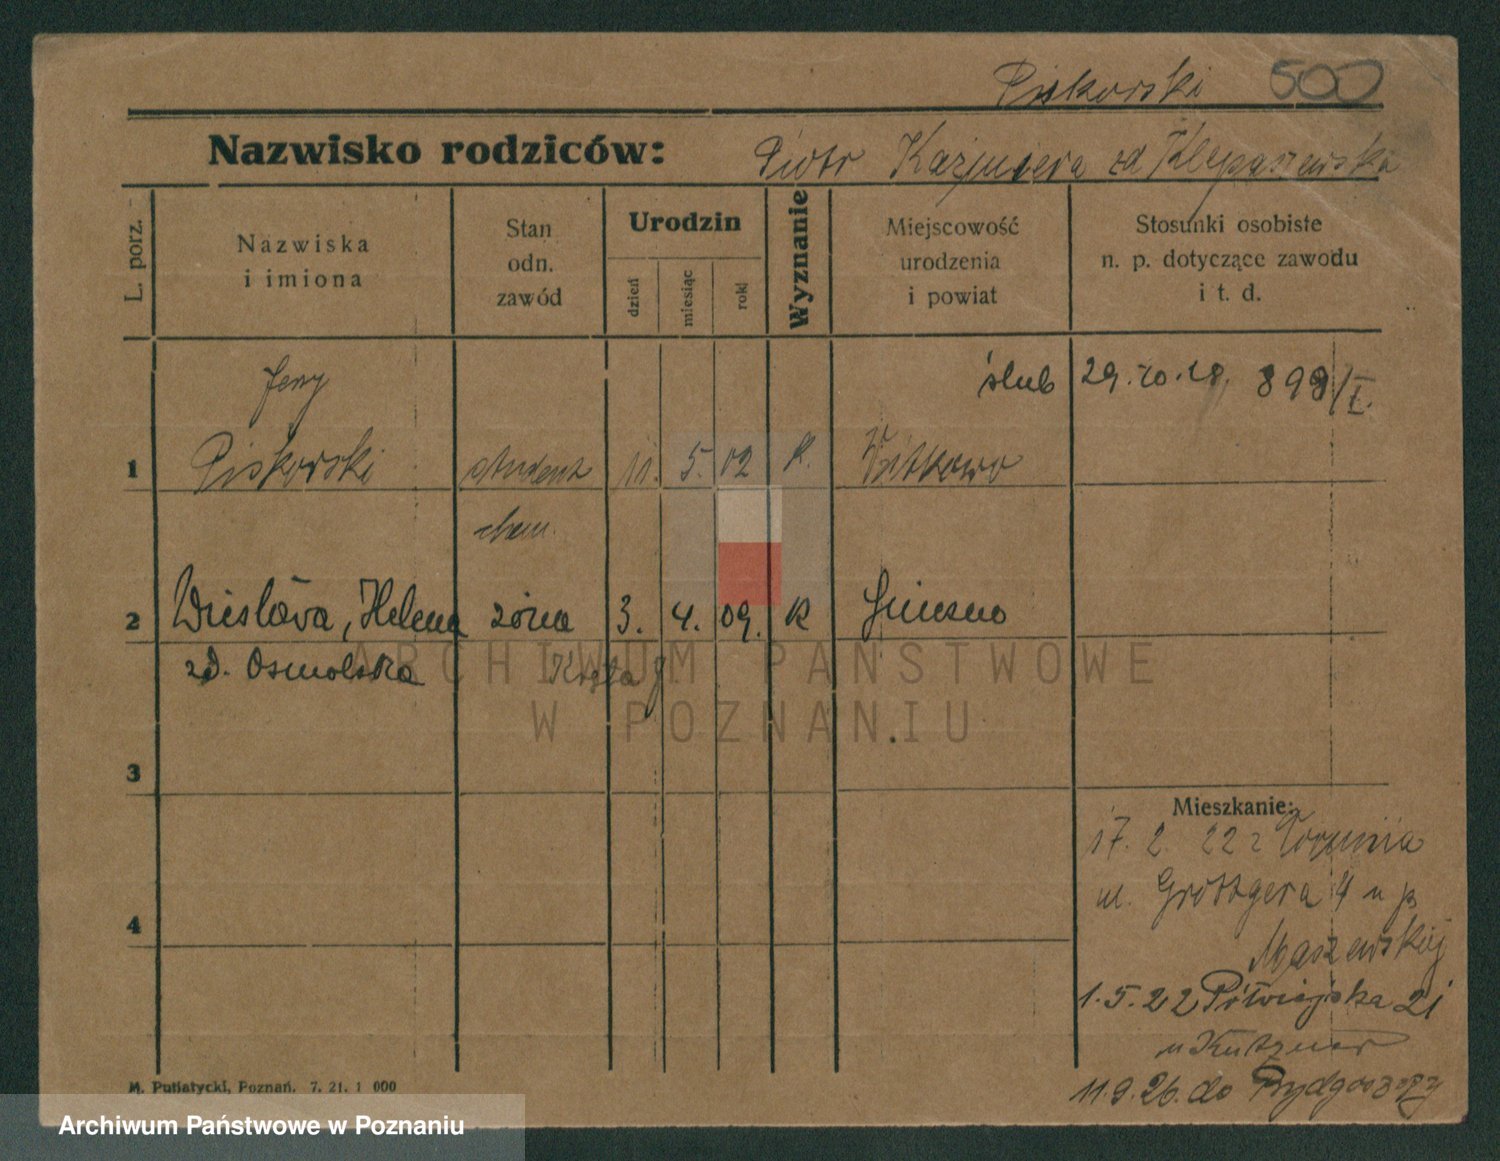 Piskorski 500
Nazwisko rodziców: Piotr Kazimiera zd Klepaszewska
L. porz.
Nazwiska i imiona
Stan odn. zawód
Urodzin
dzień
miesiąc
rok
Wyznanie
Miejscowość urodzenia i powiat
Stosunki osobiste n. p. dotyczące zawodu i t. d.
Jerzy ślub 29.10.28. 899/I.
1 Piskorski student 11. 5. 02 k. Witkowo
chem.
2 Wiesława, Helena żona 3. 4. 09. k Gniezno
zd. Osmolska
ARCHIWUM PAŃSTWOWE
W POZNANIU
3
Mieszkanie:
17. 2. 22 z Torunia
ul. Grottgera 4 u p
4
Maszewskiej
1.5.22 Półwiejska 21
u Kutzner
11.9.26. do Bydgoszczy
M. Putiatycki, Poznań. 7. 21. 1 000
Archiwum Państwowe w Poznaniu